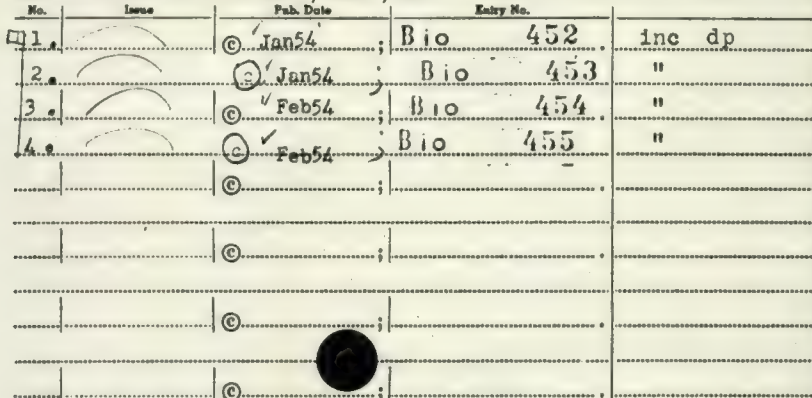 No. Issue Pub. Date Entry No.
1. © Jan54 ; Bio 452 . inc dp
2. © Jan54 ; Bio 453 "
3. © Feb54 ; Bio 454 "
4. © Feb54 ; Bio 455 "
© ; .
© ; .
© ; .
© ;